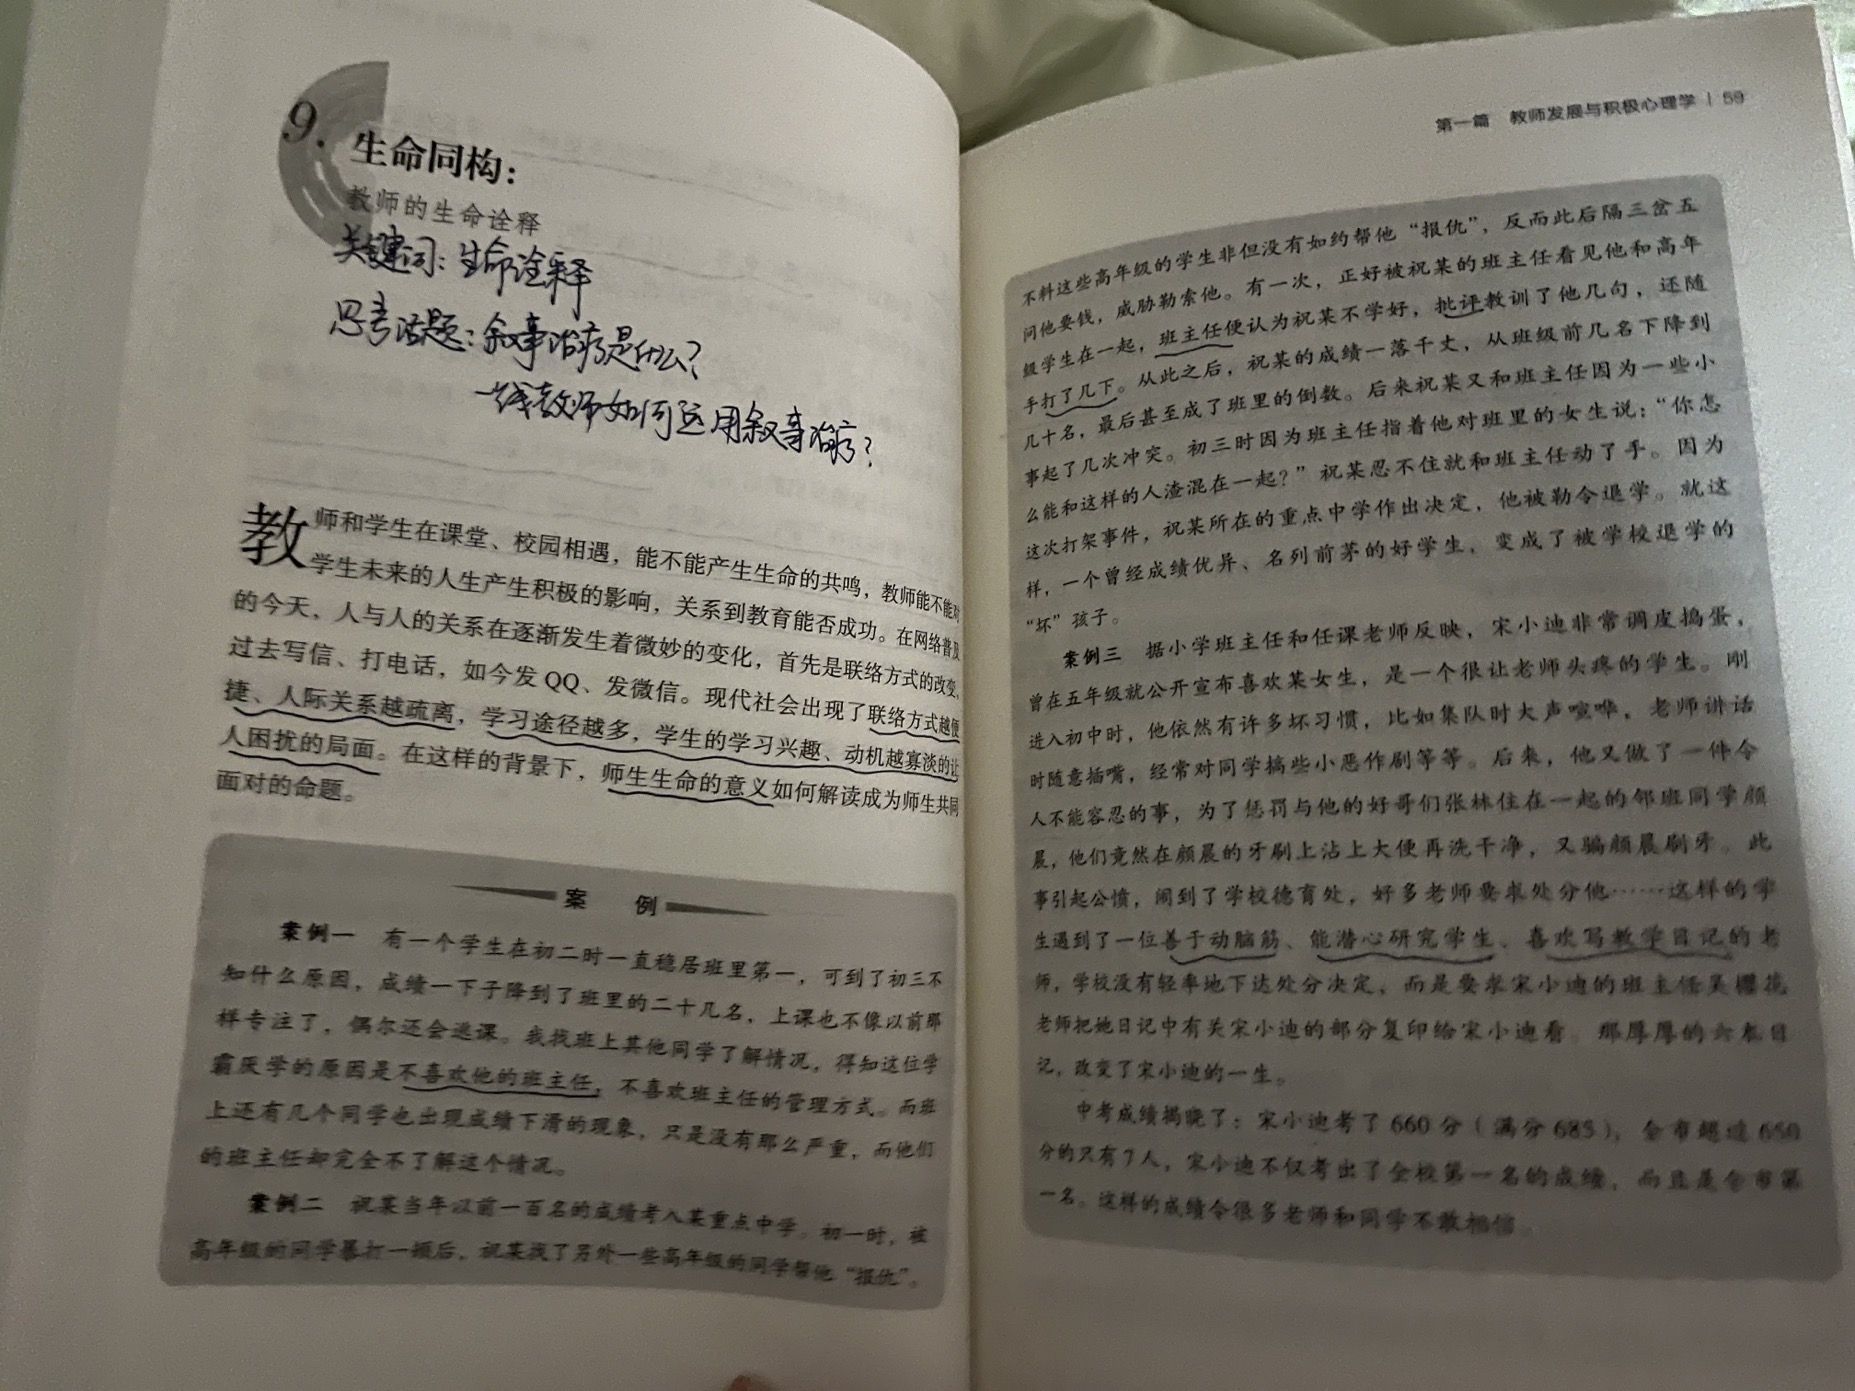 9. 生命同构：
教师的生命诠释
关键词：生命诠释
思考话题：叙事治疗是什么？
一线教师如何运用叙事治疗？
教师和学生在课堂、校园相遇，能不能产生生命的共鸣，教师能不能对
学生未来的人生产生积极的影响，关系到教育能否成功。在网络普及
的今天，人与人的关系在逐渐发生着微妙的变化，首先是联络方式的改变，
过去写信、打电话，如今发QQ、发微信。现代社会出现了联络方式越便
捷、人际关系越疏离，学习途径越多，学生的学习兴趣、动机越寡淡的让
人困扰的局面。在这样的背景下，师生生命的意义如何解读成为师生共同
面对的命题。
案 例
案例一 有一个学生在初二时一直稳居班里第一，可到了初三不
知什么原因，成绩一下子降到了班里的二十几名，上课也不像以前那
样专注了，偶尔还会逃课。我找班上其他同学了解情况，得知这位学
霸厌学的原因是不喜欢他的班主任，不喜欢班主任的管理方式。而班
上还有几个同学也出现成绩下滑的现象，只是没有那么严重，而他们
的班主任却完全不了解这个情况。
案例二 祝某当年以前一百名的成绩考入某重点中学。初一时，被
高年级的同学暴打一顿后，祝某找了另外一些高年级的同学帮他“报仇”。
第一篇 教师发展与积极心理学 | 59
不料这些高年级的学生非但没有如约帮他“报仇”，反而此后隔三岔五
问他要钱，威胁勒索他。有一次，正好被祝某的班主任看见他和高年
级学生在一起，班主任便认为祝某不学好，批评教训了他几句，还随
手打了几下。从此之后，祝某的成绩一落千丈，从班级前几名下降到
几十名，最后甚至成了班里的倒数。后来祝某又和班主任因为一些小
事起了几次冲突。初三时因为班主任指着他对班里的女生说：“你怎
么能和这样的人渣混在一起？”祝某忍不住就和班主任动了手。因为
这次打架事件，祝某所在的重点中学作出决定，他被勒令退学。就这
样，一个曾经成绩优异、名列前茅的好学生，变成了被学校退学的
“坏”孩子。
案例三 据小学班主任和任课老师反映，宋小迪非常调皮捣蛋，
曾在五年级就公开宣布喜欢某女生，是一个很让老师头疼的学生。刚
进入初中时，他依然有许多坏习惯，比如集队时大声喧哗，老师讲话
时随意插嘴，经常对同学搞些小恶作剧等等。后来，他又做了一件令
人不能容忍的事，为了惩罚与他的好哥们张林住在一起的邻班同学颜
晨，他们竟然在颜晨的牙刷上沾上大便再洗干净，又骗颜晨刷牙。此
事引起公愤，闹到了学校德育处，好多老师要求处分他……这样的学
生遇到了一位善于动脑筋、能潜心研究学生、喜欢写教学日记的老
师，学校没有轻率地下达处分决定，而是要求宋小迪的班主任吴樱花
老师把她日记中有关宋小迪的部分复印给宋小迪看。那厚厚的六本日
记，改变了宋小迪的一生。
中考成绩揭晓了：宋小迪考了660分（满分685），全市超过650
分的只有7人，宋小迪不仅考出了全校第一名的成绩，而且是全市第
一名。这样的成绩令很多老师和同学不敢相信。